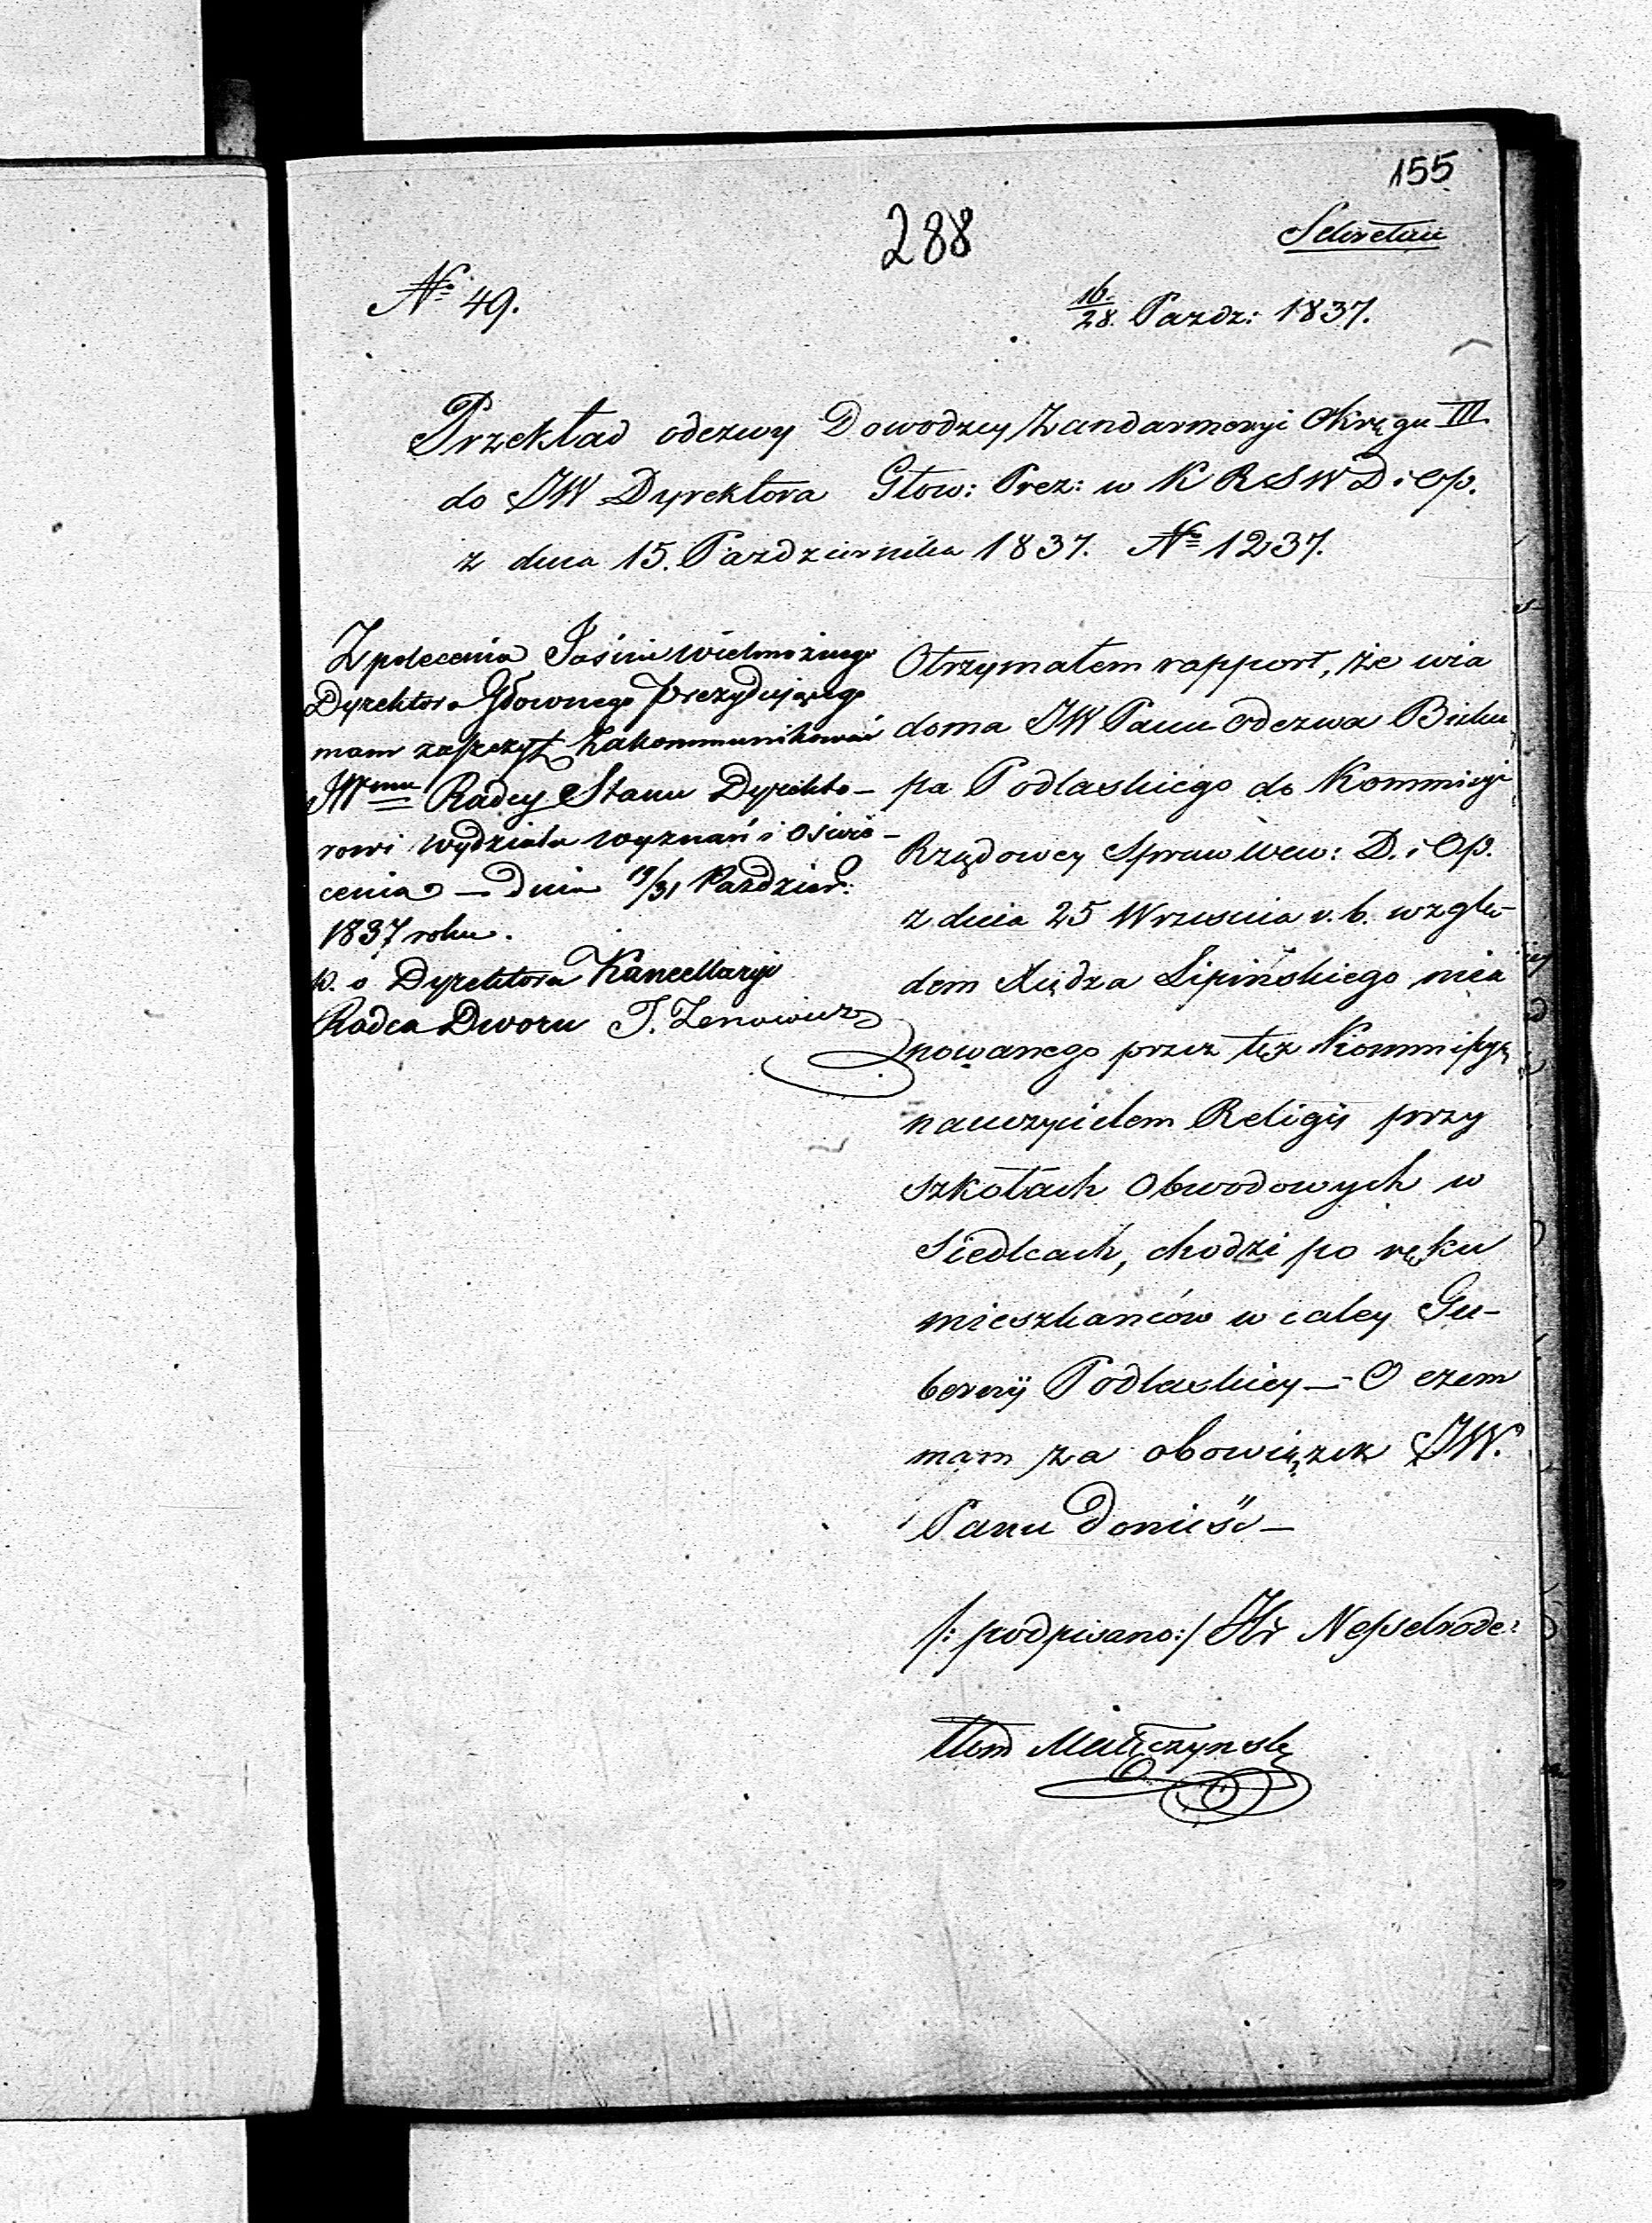 155
288
Sekretne
№ 49.
16/28. Pazdz: 1837.
Przekład odezwy Dowodzcy Żandarmeryi Okręgu III
do JW Dyrektora Głow: Prez: w K R S W D i Op.
z dnia 15. Pazdziernika 1837. № 1237.
Z polecenia Jaśnie Wielmożnego
Dyrektora Głownego Prezydującego
mam zaszczyt zakommunikować
JWmu Radcy Stanu Dyrekto-
rowi Wydziału Wyznań i Oświe-
cenia — Dnia 19/31 Pazdzier:
1837 roku.
w. o Dyrektora Kancellaryi
Radca Dworu J. Zenowicz
Otrzymałem rapport, że wia
doma JW Panu odezwa Bisku
pa Podlaskiego do Kommissyi
Rządowey Spraw Wew: D. i Op.
z dnia 25 Wrzesnia r. b. wzglę-
dem Xiędza Lipińskiego mia
nowanego przez tęż Kommissyę
nauczycielem Religii przy
szkołach Obwodowych w
Siedlcach, chodzi po ręku
mieszkańców w całey Gu-
bernij Podlaskiey — O czem
mam za obowiązek JW.
Panu donieść —
/: podpisano:/ Hr Nesselrode.
Tłom